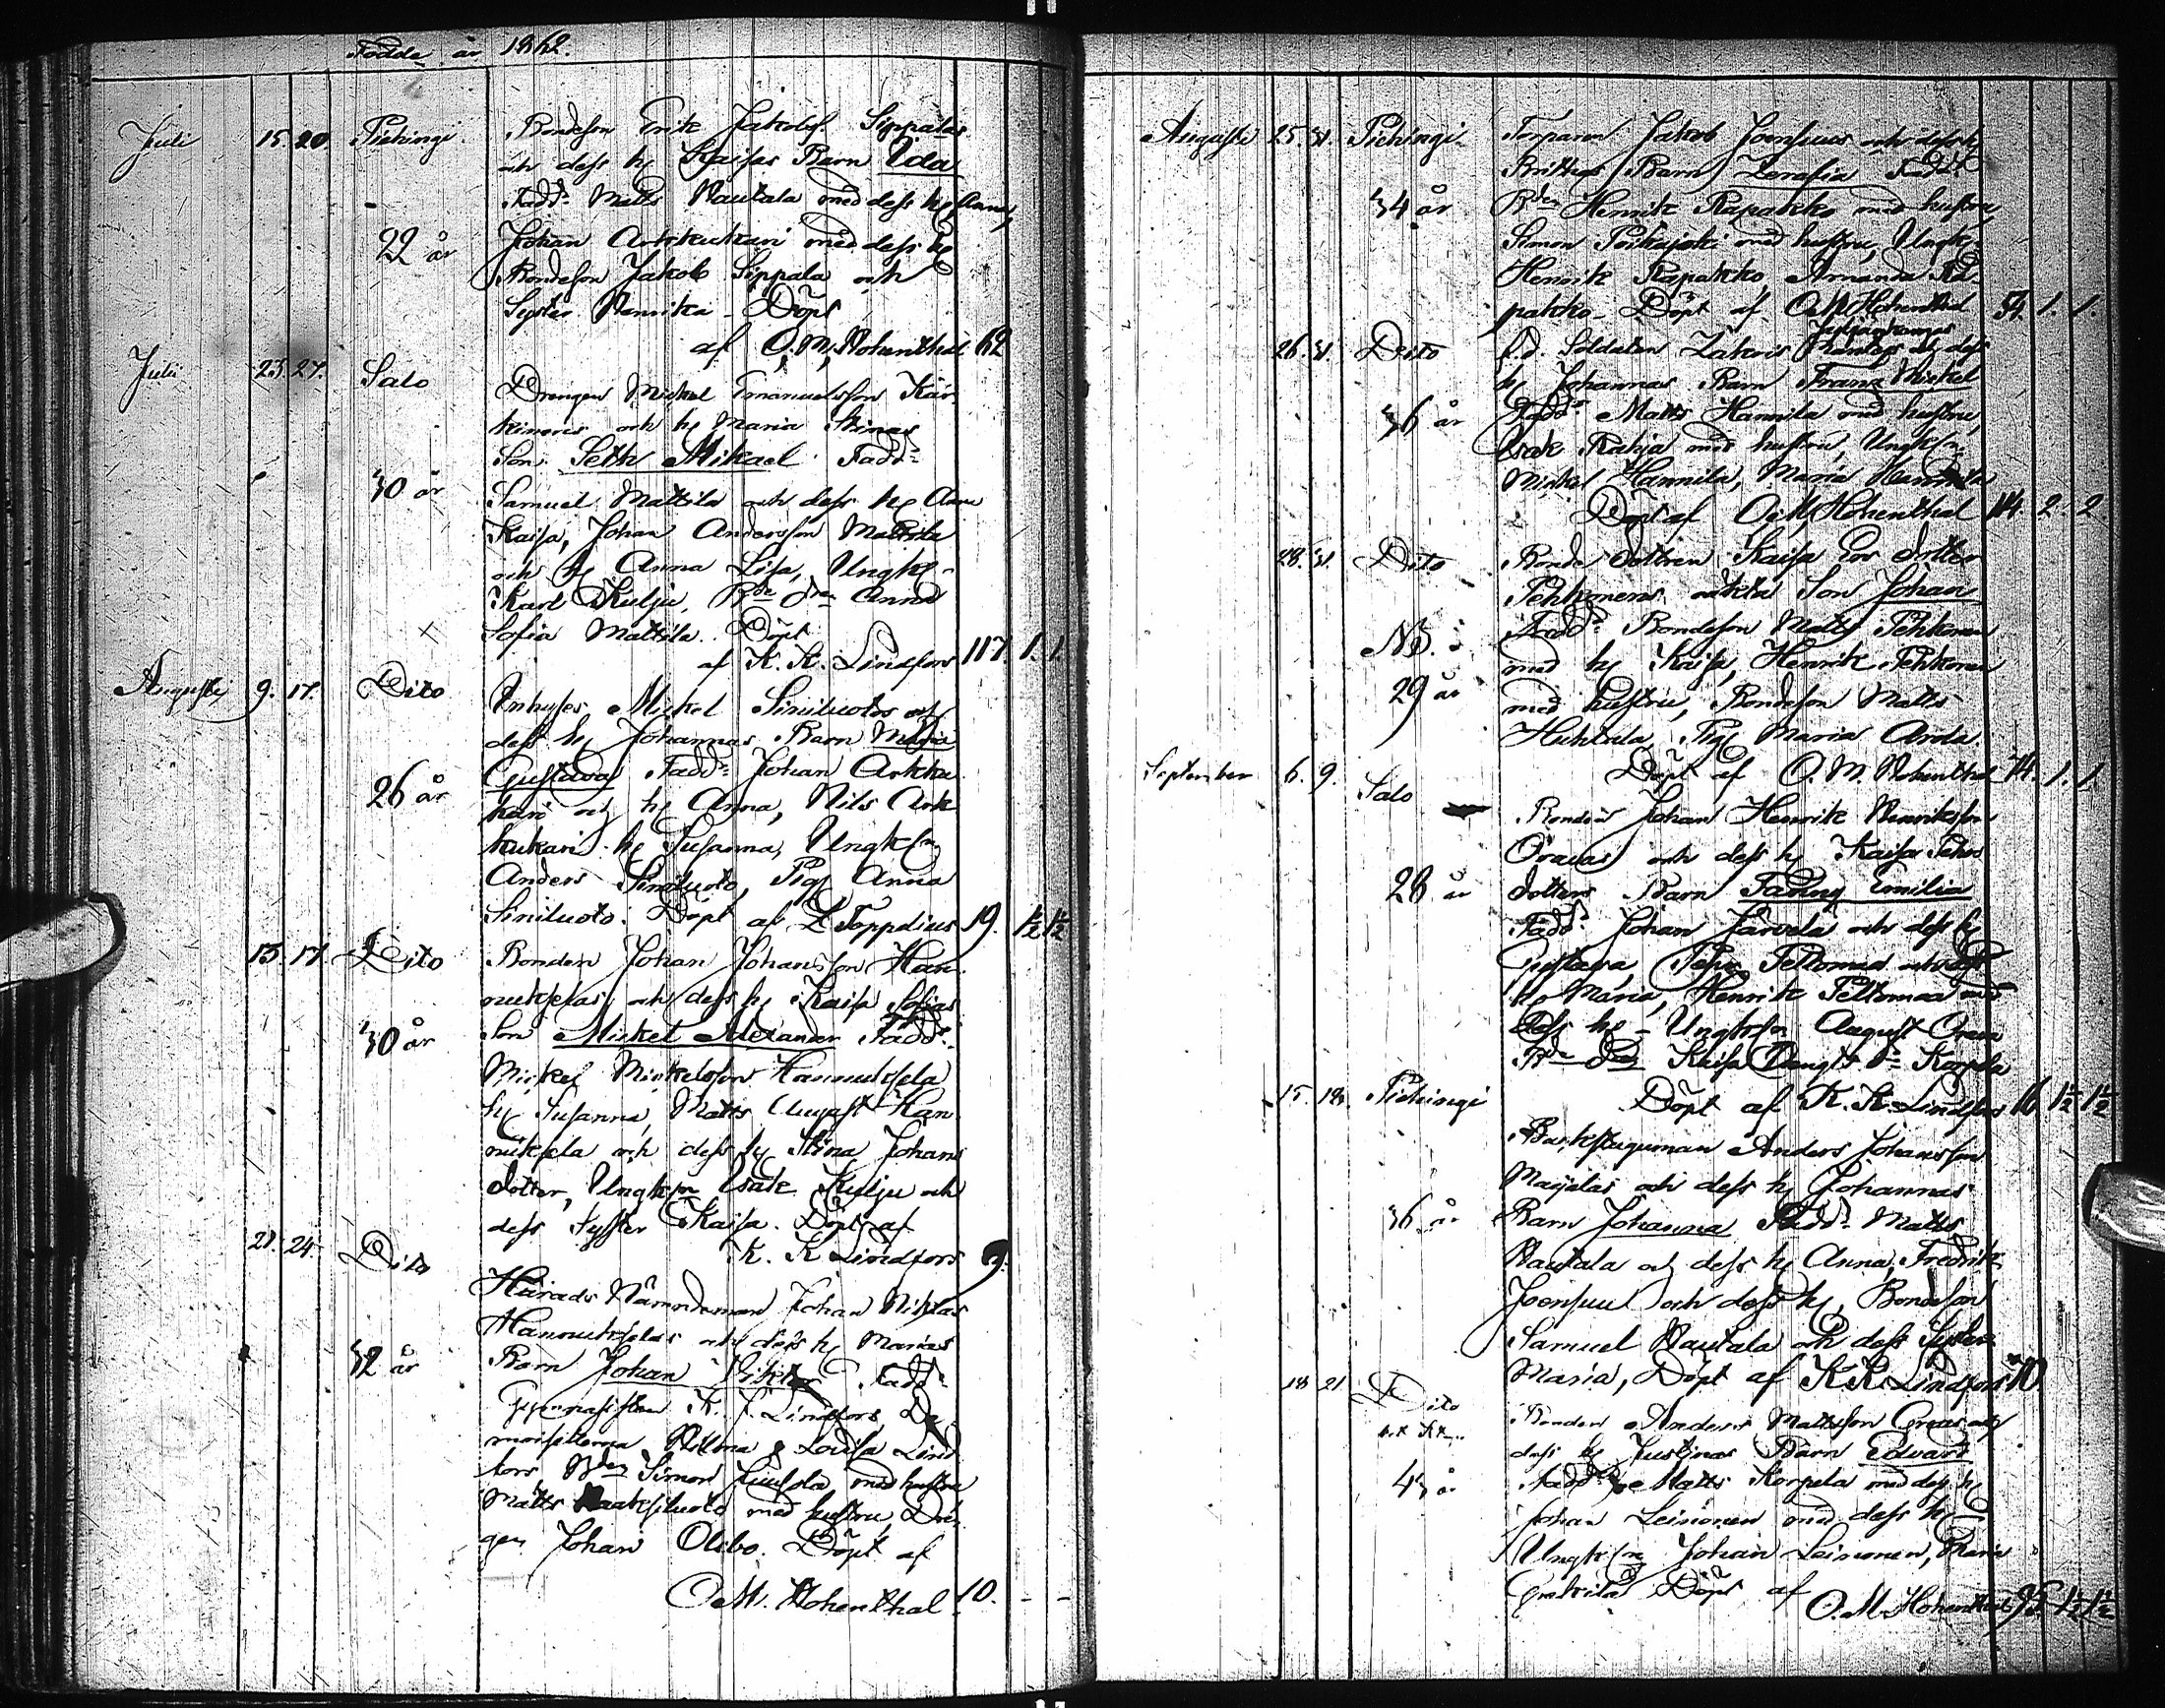 Födde år 1862.
Juli 15. 20. Pichingi Bondeson Erik Jakobs. Sippalas
och dess h Kaisas Barn Ida
Fadd. Matts Nautala med dess h Anna,
22 år Johan Arkkukari med dess h
Bondeson Jakob Sippala och
Syster Henrika Döpt
af O. M. Hohenthal 62
Juli 23. 27. Salo Drengen Mickel Emanuelsson Kär
kinens och h Maria Stinas
Son Seth Mikael Fadd.
30 år Samuel Mattila och dess h Anna
Kaisa, Johan Andersson Mattila
och h Anna Lisa, Ungk
Karl Kulju, Bde dr Anna
Sofia Mattila. Döpt
af K. K. Lindfors 117. 1. 1.
Augusti 9. 17. Dito Inhyses Mickel Siniluotos och
dess h Johannas Barn Maria
Gustava Fadd. Johan Arkku
26 år kari och h Anna, Nils Ark
kukari h Susanna, Ungksn
Anders Siniluoto, Pig Anna
Siniluoto. Döpt af L Toppelius 19. ½ ½
13. 17. Dito Bonden Johan Johansson Han
nukselas och dess h Kaisa Sofias
30 år Son Mickel Alexander Fadd.
Mickel Mickelsson Hannuksela
h Susanna, Matts August Han
nuksela och dess h Stina Johans
dotter, Ungksn Isak Kulju och
dess Syster Kaisa. Döpt af
K. K Lindfors 9.
21. 24. Dito Härads Nämndeman Johan Niklas
Hannukselas och dess h Marias
32 år Barn Johan Viktor Fadd.
Gymnasisten K. J. Lindfors, De
moisellerna Wilma & Lovisa Lind
fors, Bden Simon med hustru
Matts med hustru, Dren
gen Johan Olebo. Döpt af
O. M. Hohenthal 10. - -
Augusti 25. 31. Pichingi Torparen Jakob Joensuus och dess h
Brittas Barn Serafia Fadd.
34 år Bden Henrik Rapakko med hustru,
Simon Poikajoki med hustru, Ungk
Henrik Rapakko, Amanda Ra
pakko. Döpt af O. M. Hohenthal 54. 1. 1.
26. 31. Dito f.d. Soldaten Zakris och dess
h Johannas Barn Frans Mickel
36 år Fadd. Matts Hannila med hustru,
Isak Rahja med hustru, Ungksn
Mickel Hannila, Maria Hannila
Döpt af O. M. Hohenthal 114. 2. 2
28. 31. Dito Bonde dottren Kaisa Ers dotter
Pehkonens oäkta Son Johan
NB. Fadd. Bondeson Matts Pehkonen
med h Kaisa, Henrik Pehkonen
29 år med hustru, Bondeson Matts
Huhtala, Pig Maria Arola.
September 6. 9. Salo Döpt af O. M. Hohenthal 74. 1. 1.
Bonden Johan Henrik Henriksson
Oravas och dess h Kaisa Pehrs
28 år dotters Barn Fanny Emilia
Fadd. Johan Järvelä och dess h
Gustava, Pehr Peltomaa och dess
h Maria, Henrik Peltomaa med
dess h Ungksn August Orava
Bde dr Kaisa Bengts dr Korpela
15. 18. Pichingi Döpt af K. K. Lindfors 16 1½ 1½
Backstuguman Anders Johansson
Maijalas och dess h Johannas
36 år Barn Johanna Fadd. Matts
Nautala och dess h Anna, Fredrik
Joensuu och dess h, Bondeson
Samuel Nautala och dess Syster
Maria, Döpt af K K Lindfors 10
18 21 Dito Bonden Anders Mattsson och
dess h Justinas Barn Edvard
43 år Fadd. Matts Korpela med dess h
Johan Leinonen med dess h
Ungksn Johan Leinonen, Maria
Döpt af O. M. Hohenthal 95. 1½ 1½